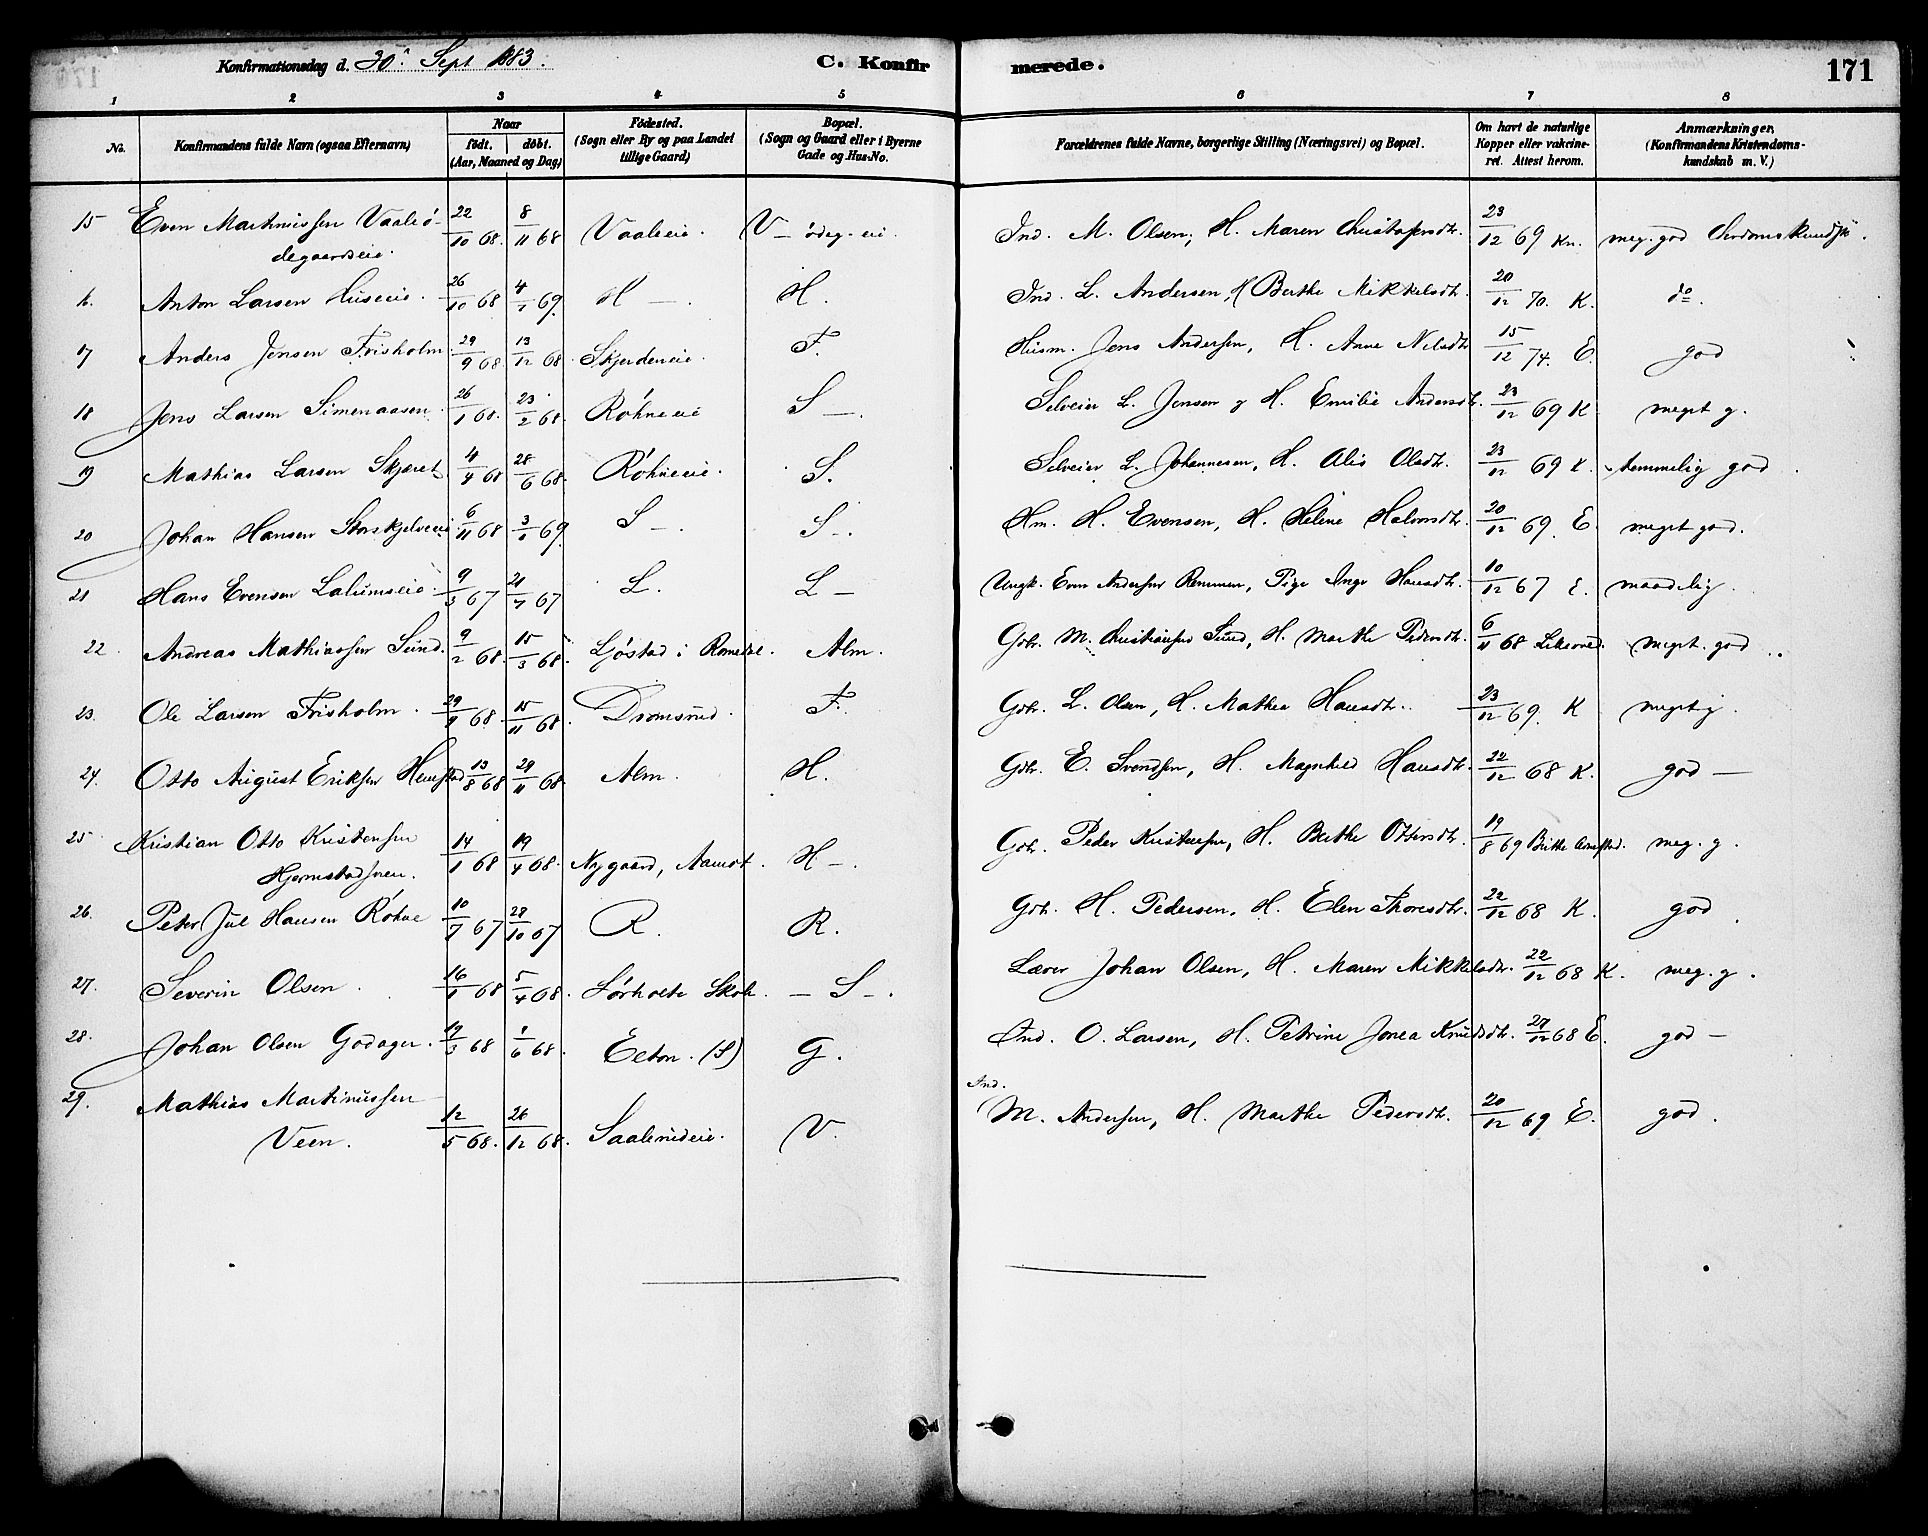 Konfirmationsdag d. 30' Sept 1883. C. Konfirmerede. 171
1 2 3 4 5 6 7 8
No. Konfirmandens fulde Navn (ogsaa Efternavn) Naar födt. döbt. (Aar, Maaned og Dag) Födested. (Sogn eller By og paa Landet tillige Gaard) Bopæl. (Sogn og Gaard eller i Byerne Gade og Hus-No. Forældrenes fulde Navne, borgerlige Stilling (Næringsvei) og Bopæl. Om havt de naturlige Kopper eller vakcineret. Attest herom. Anmærkninger. (Konfirmandens Kristendomskundskab m. V.)
15 Even Martinussen Vaalsö- 22/10 68. 8/11 68 Vaaleeie. V— ödeg. eie. Ind. M. Olsen, H. Maren Christophersdtr. 23/12 69 Kn. meg. god
degaardseie.
Anton Larsen Huseeie. 26/10 68 4/1 69. H —. H. Ind. L. Andersen, H Berthe Mikkelsdtr. 20/12 70. K. do.
17 Anders Jensen Frisholm 29/9 68. 13/12 68 Skjerdeneie. F. Husm. Jens Andersen, H. Anne Nilsdtr 15/12 74. E. god
18 Jens Larsen Simenaasen. 26/1 68. 23/2 68. Röhneeie S —. Selveier L. Jensen og H. Emilie Andersdtr. 23/12 69 K meget g.
19 Mathias Larsen Skjæret 4/4 68 28/6 68. Röhneeie. S. Selveier L. Johannesen, H. Alis Olsdtr. 23/12 69 K. temmelig god.
20 Johan Hansen Storskjelveeie. 6/11 68 3/1 69. S —. S —. Hm. H. Evensen, H. Helene Halvorsdtr. 20/12 69. E. meget god.
21 Hans Evensen Lalumseie. 9/3 67 21/7 67 L. L — Ungk. Even Andersen Remmen, Pige Inge Hansdtr. 10/12 67 E. maadelig.
22. Andreas Mathiassen Sund. 9/2 68. 15/3 68. Ljöstad i Romedal. Alm. Gbr. M. Christiansen Sund, H. Marthe Pedersdtr. 6/11 68 meget god
23. Ole Larsen Frisholm. 29/9 68. 15/11 68. F. Gbr. L. Olsen, H. Mathea Hansdtr. 23/12 69. K meget g.
24. Otto August Eriksen 13/8 68 29/11 68. Alm. H. Gbr. E. Svendsen, H. Magnhild Hansdtr. 22/12 68 K. god —
25 Kristian Otto Kristensen 14/1 68 19/4 68. Nygaard, Aamot. H —. Gbr. Peder Kristensen, H. Berthe Ottersdtr. 19/8 69 meg. g.
Hjermstadsveen.
26. Peter Jul Hansen Röhne 10/7 67 28/10 67 R. R. Gbr. H. Pedersen, H. Elen Thoresdtr. 22/12 68 K. god
27. Severin Olsen. 16/1 68 5/4 68. Sörholte Skole. — S —. Lærer Johan Olsen, H. Maren Mikkelsdtr. 22/12 68 K. meg. g.
28. Johan Olsen Godager. 19/3 68 1/6 68. Eeton. (S) G. Ind. O. Larsen, H. Petrine Jonea Knudsdtr. 27/12 68 E. god —
29. Mathias Martinussen Ind.
Veen. 12/5 68. 26/12 68. Saalerudeie. V. M. Andersen, H. Marthe Pedersdtr. 20/12 69 E. god.